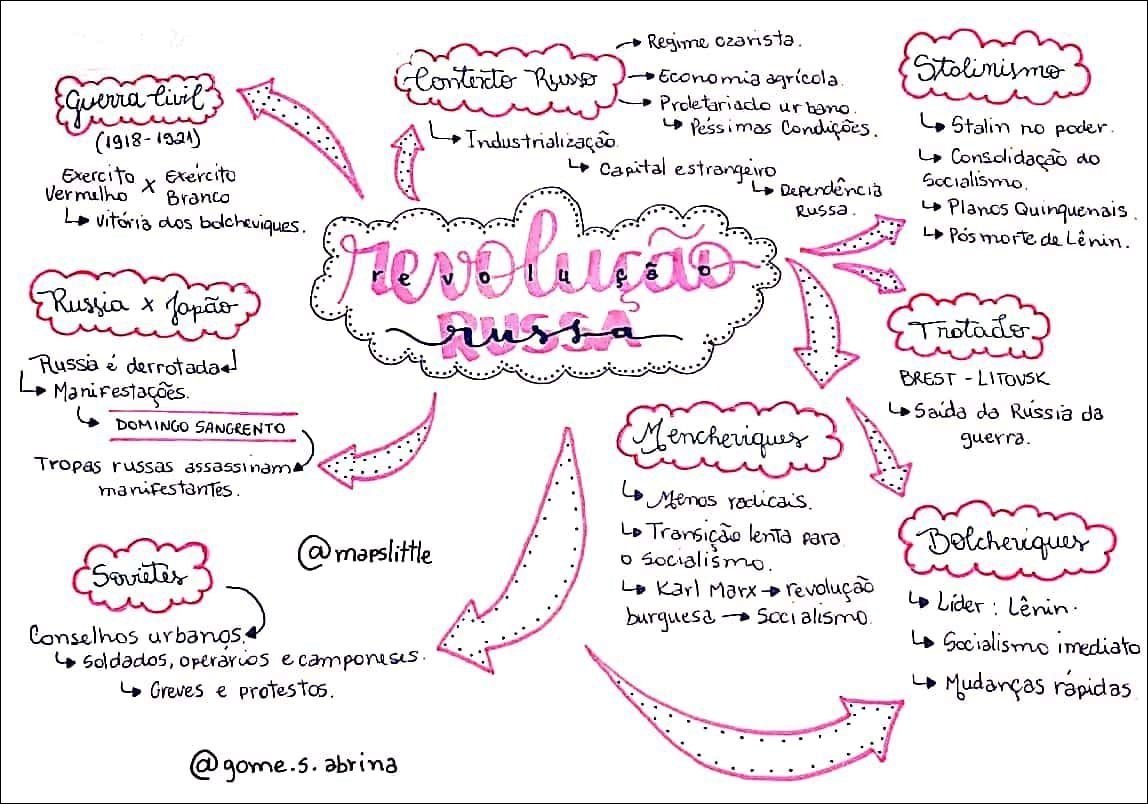 revolução
revolução
RUSSA
russa
Contexto Russo
Regime czarista.
Economia agrícola.
Proletariado urbano.
Péssimas Condições.
Industrialização.
Capital estrangeiro
Dependência
Russa.
Stalinismo
Stalin no poder.
Consolidação do
Socialismo.
Planos Quinquenais.
Pós morte de Lênin.
Guerra Civil
(1918-1921)
Exercito x Exército
Vermelho Branco
Vitória dos bolcheviques.
Russia x Japão
Russia é derrotada
Manifestações.
DOMINGO SANGRENTO
Tropas russas assassinam
manifestantes.
Tratado
BREST - LITOVSK
Saída da Rússia da
guerra.
Mencheviques
Menos radicais.
Transição lenta para
o socialismo.
Karl Marx → revolução
burguesa → Socialismo.
Bolcheviques
Líder: Lênin.
Socialismo imediato
Mudanças rápidas.
Sovietes
Conselhos urbanos.
Soldados, operários e camponeses.
Greves e protestos.
@mapslittle
@gome.s.abrina